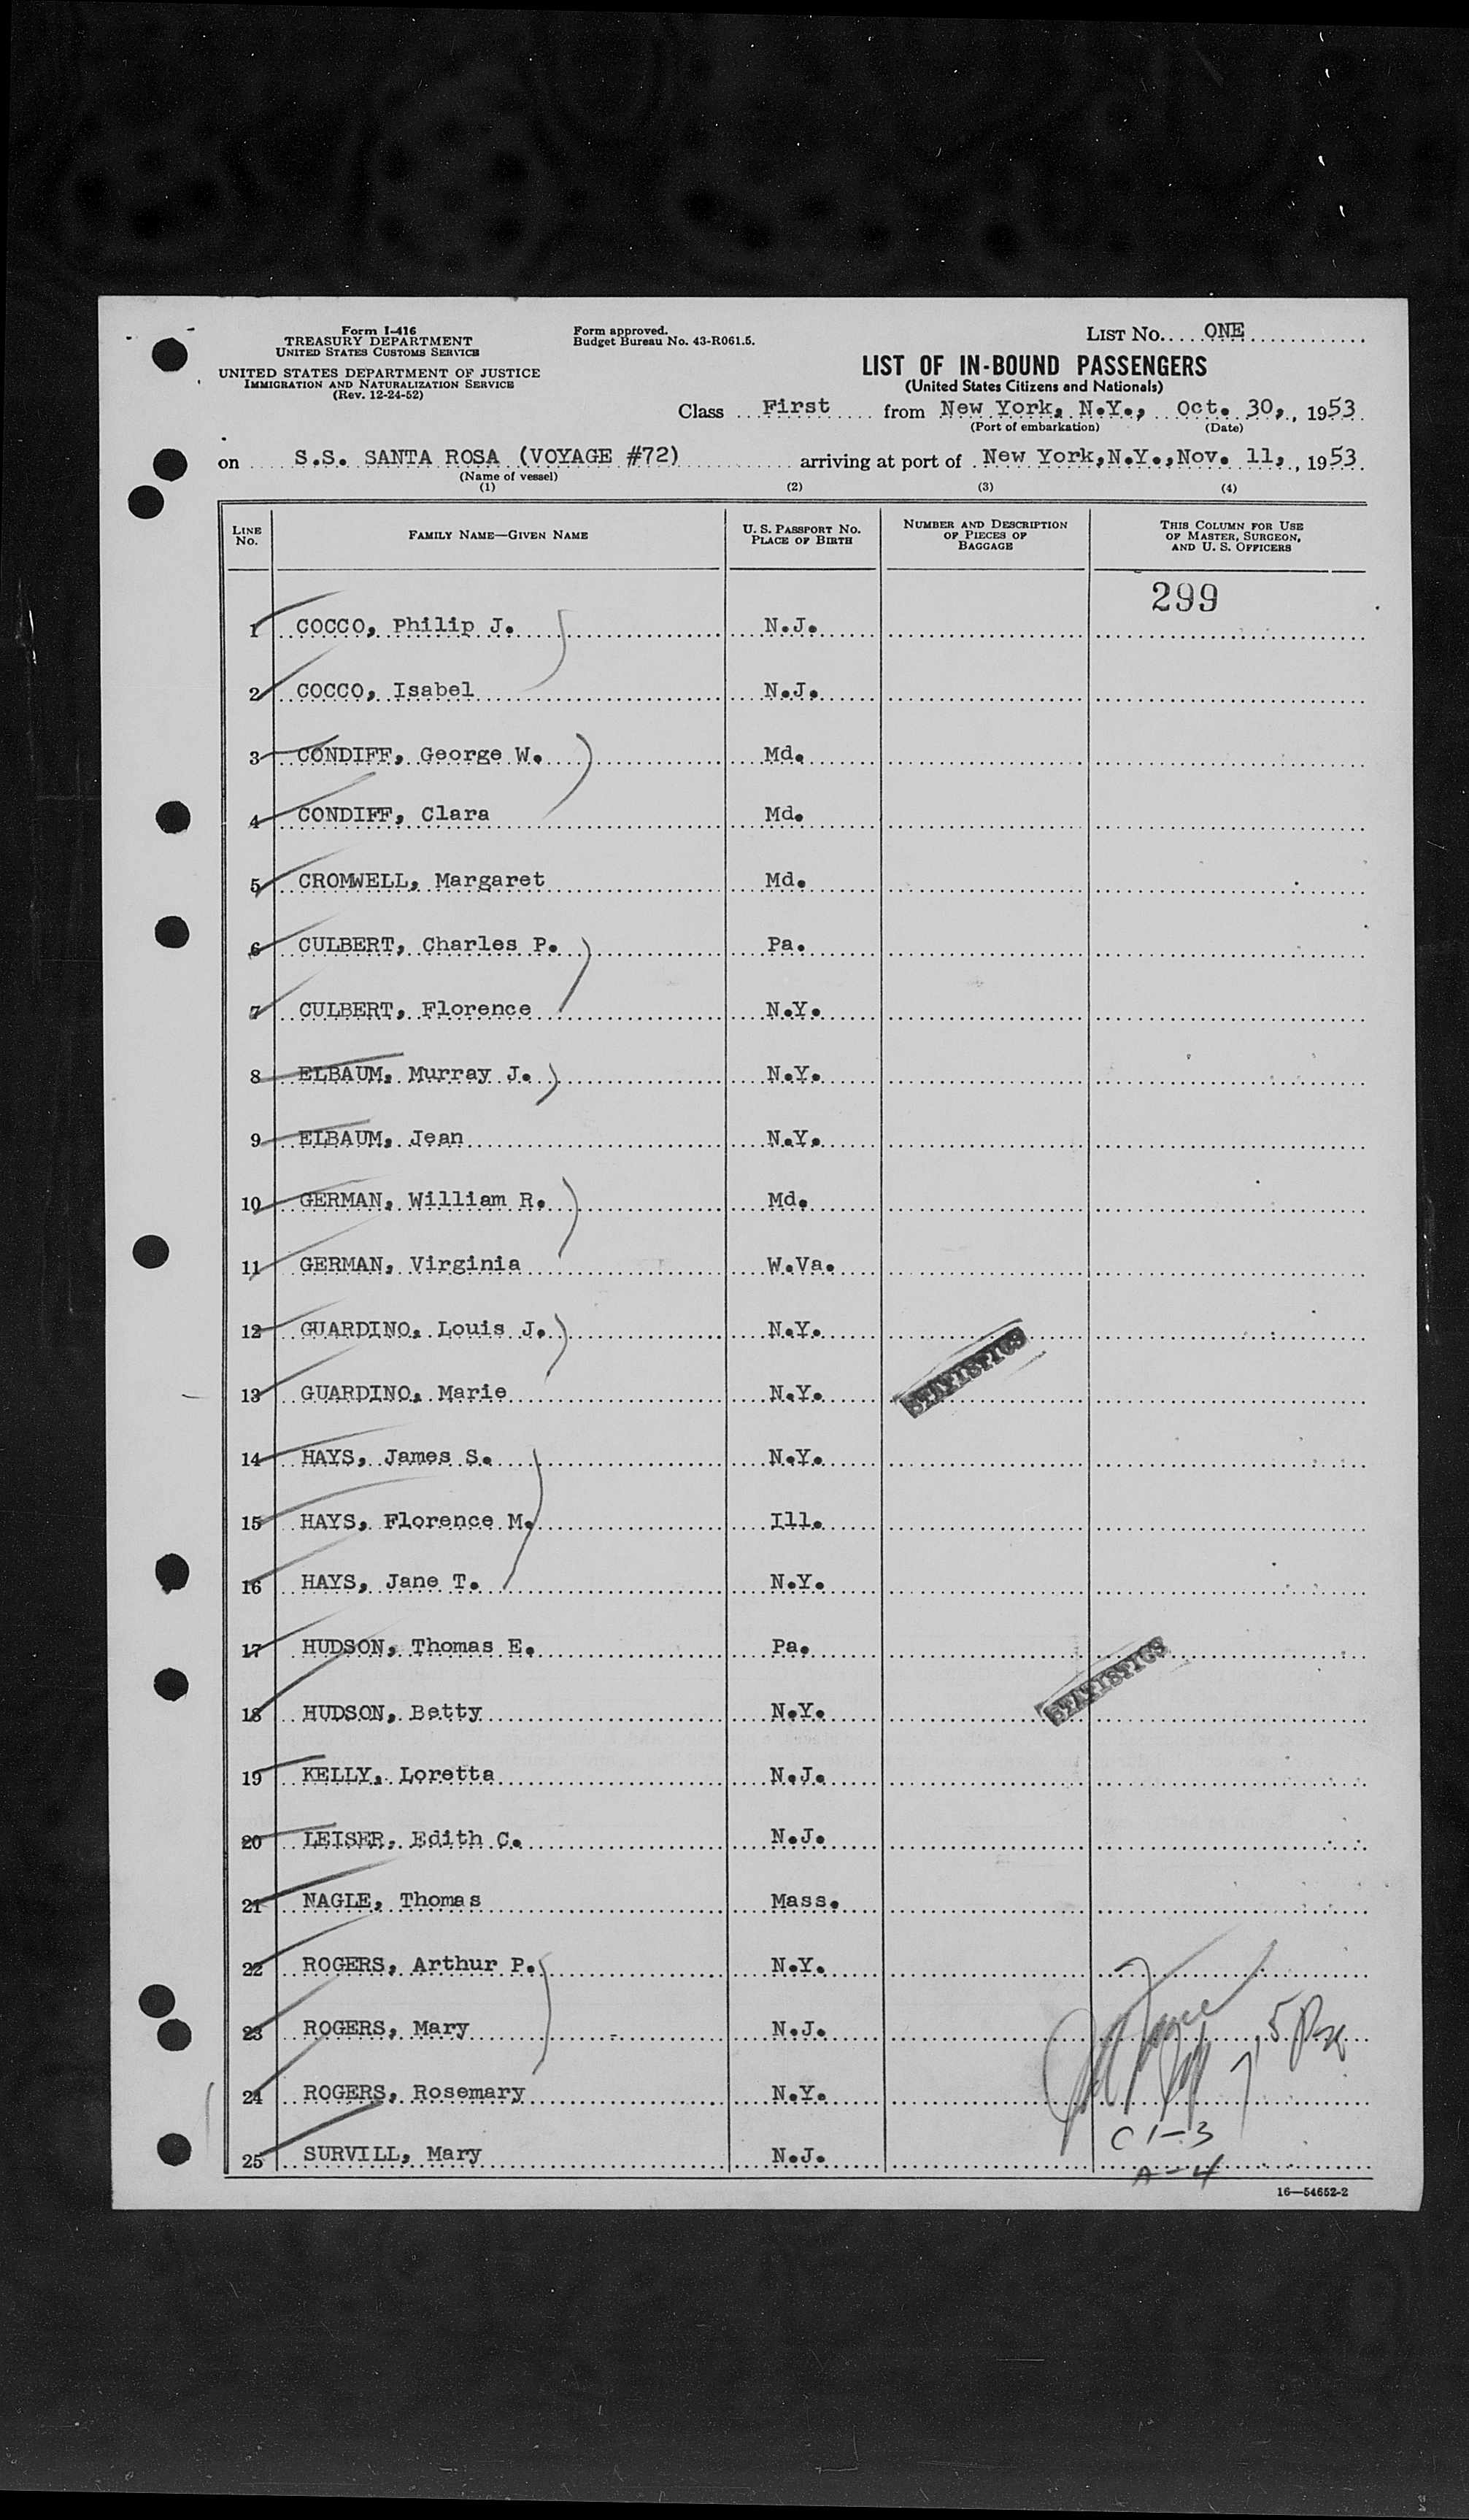 Form I-416
TREASURY DEPARTMENT
UNITED STATES CUSTOMS SERVICE
UNITED STATES DEPARTMENT OF JUSTICE
IMMIGRATION AND NATURALIZATION SERVICE
(Rev. 12-24-52)
Form approved.
Budget Bureau No. 43-R061.5.
LIST No. ONE
LIST OF IN-BOUND PASSENGERS
(United States Citizens and Nationals)
Class First from New York, N.Y., Oct. 30, , 1953
(Port of embarkation) (Date)
on S.S. SANTA ROSA (VOYAGE #72) arriving at port of New York,N.Y.,Nov. 11, , 1953
(Name of vessel)
(1) (2) (3) (4)
LINE No. FAMILY NAME—GIVEN NAME U. S. PASSPORT No. PLACE OF BIRTH NUMBER AND DESCRIPTION OF PIECES OF BAGGAGE THIS COLUMN FOR USE OF MASTER, SURGEON, AND U. S. OFFICERS
299
1 COCCO, Philip J. N.J.
2 COCCO, Isabel N.J.
3 CONDIFF, George W. Md.
4 CONDIFF, Clara Md.
5 CROMWELL, Margaret Md.
6 CULBERT, Charles P. Pa.
7 CULBERT, Florence N.Y.
8 ELBAUM, Murray J. N.Y.
9 ELBAUM, Jean N.Y.
10 GERMAN, William R. Md.
11 GERMAN, Virginia W.Va.
12 GUARDINO, Louis J. N.Y.
13 GUARDINO, Marie N.Y.
STATISTICS
14 HAYS, James S. N.Y.
15 HAYS, Florence M. Ill.
16 HAYS, Jane T. N.Y.
17 HUDSON, Thomas E. Pa.
STATISTICS
18 HUDSON, Betty N.Y.
19 KELLY, Loretta N.J.
20 LEISER, Edith C. N.J.
21 NAGLE, Thomas Mass.
22 ROGERS, Arthur P. N.Y.
23 ROGERS, Mary N.J.
24 ROGERS, Rosemary N.Y.
C 1-3
25 SURVILL, Mary N.J.
A-4
16—54652-2